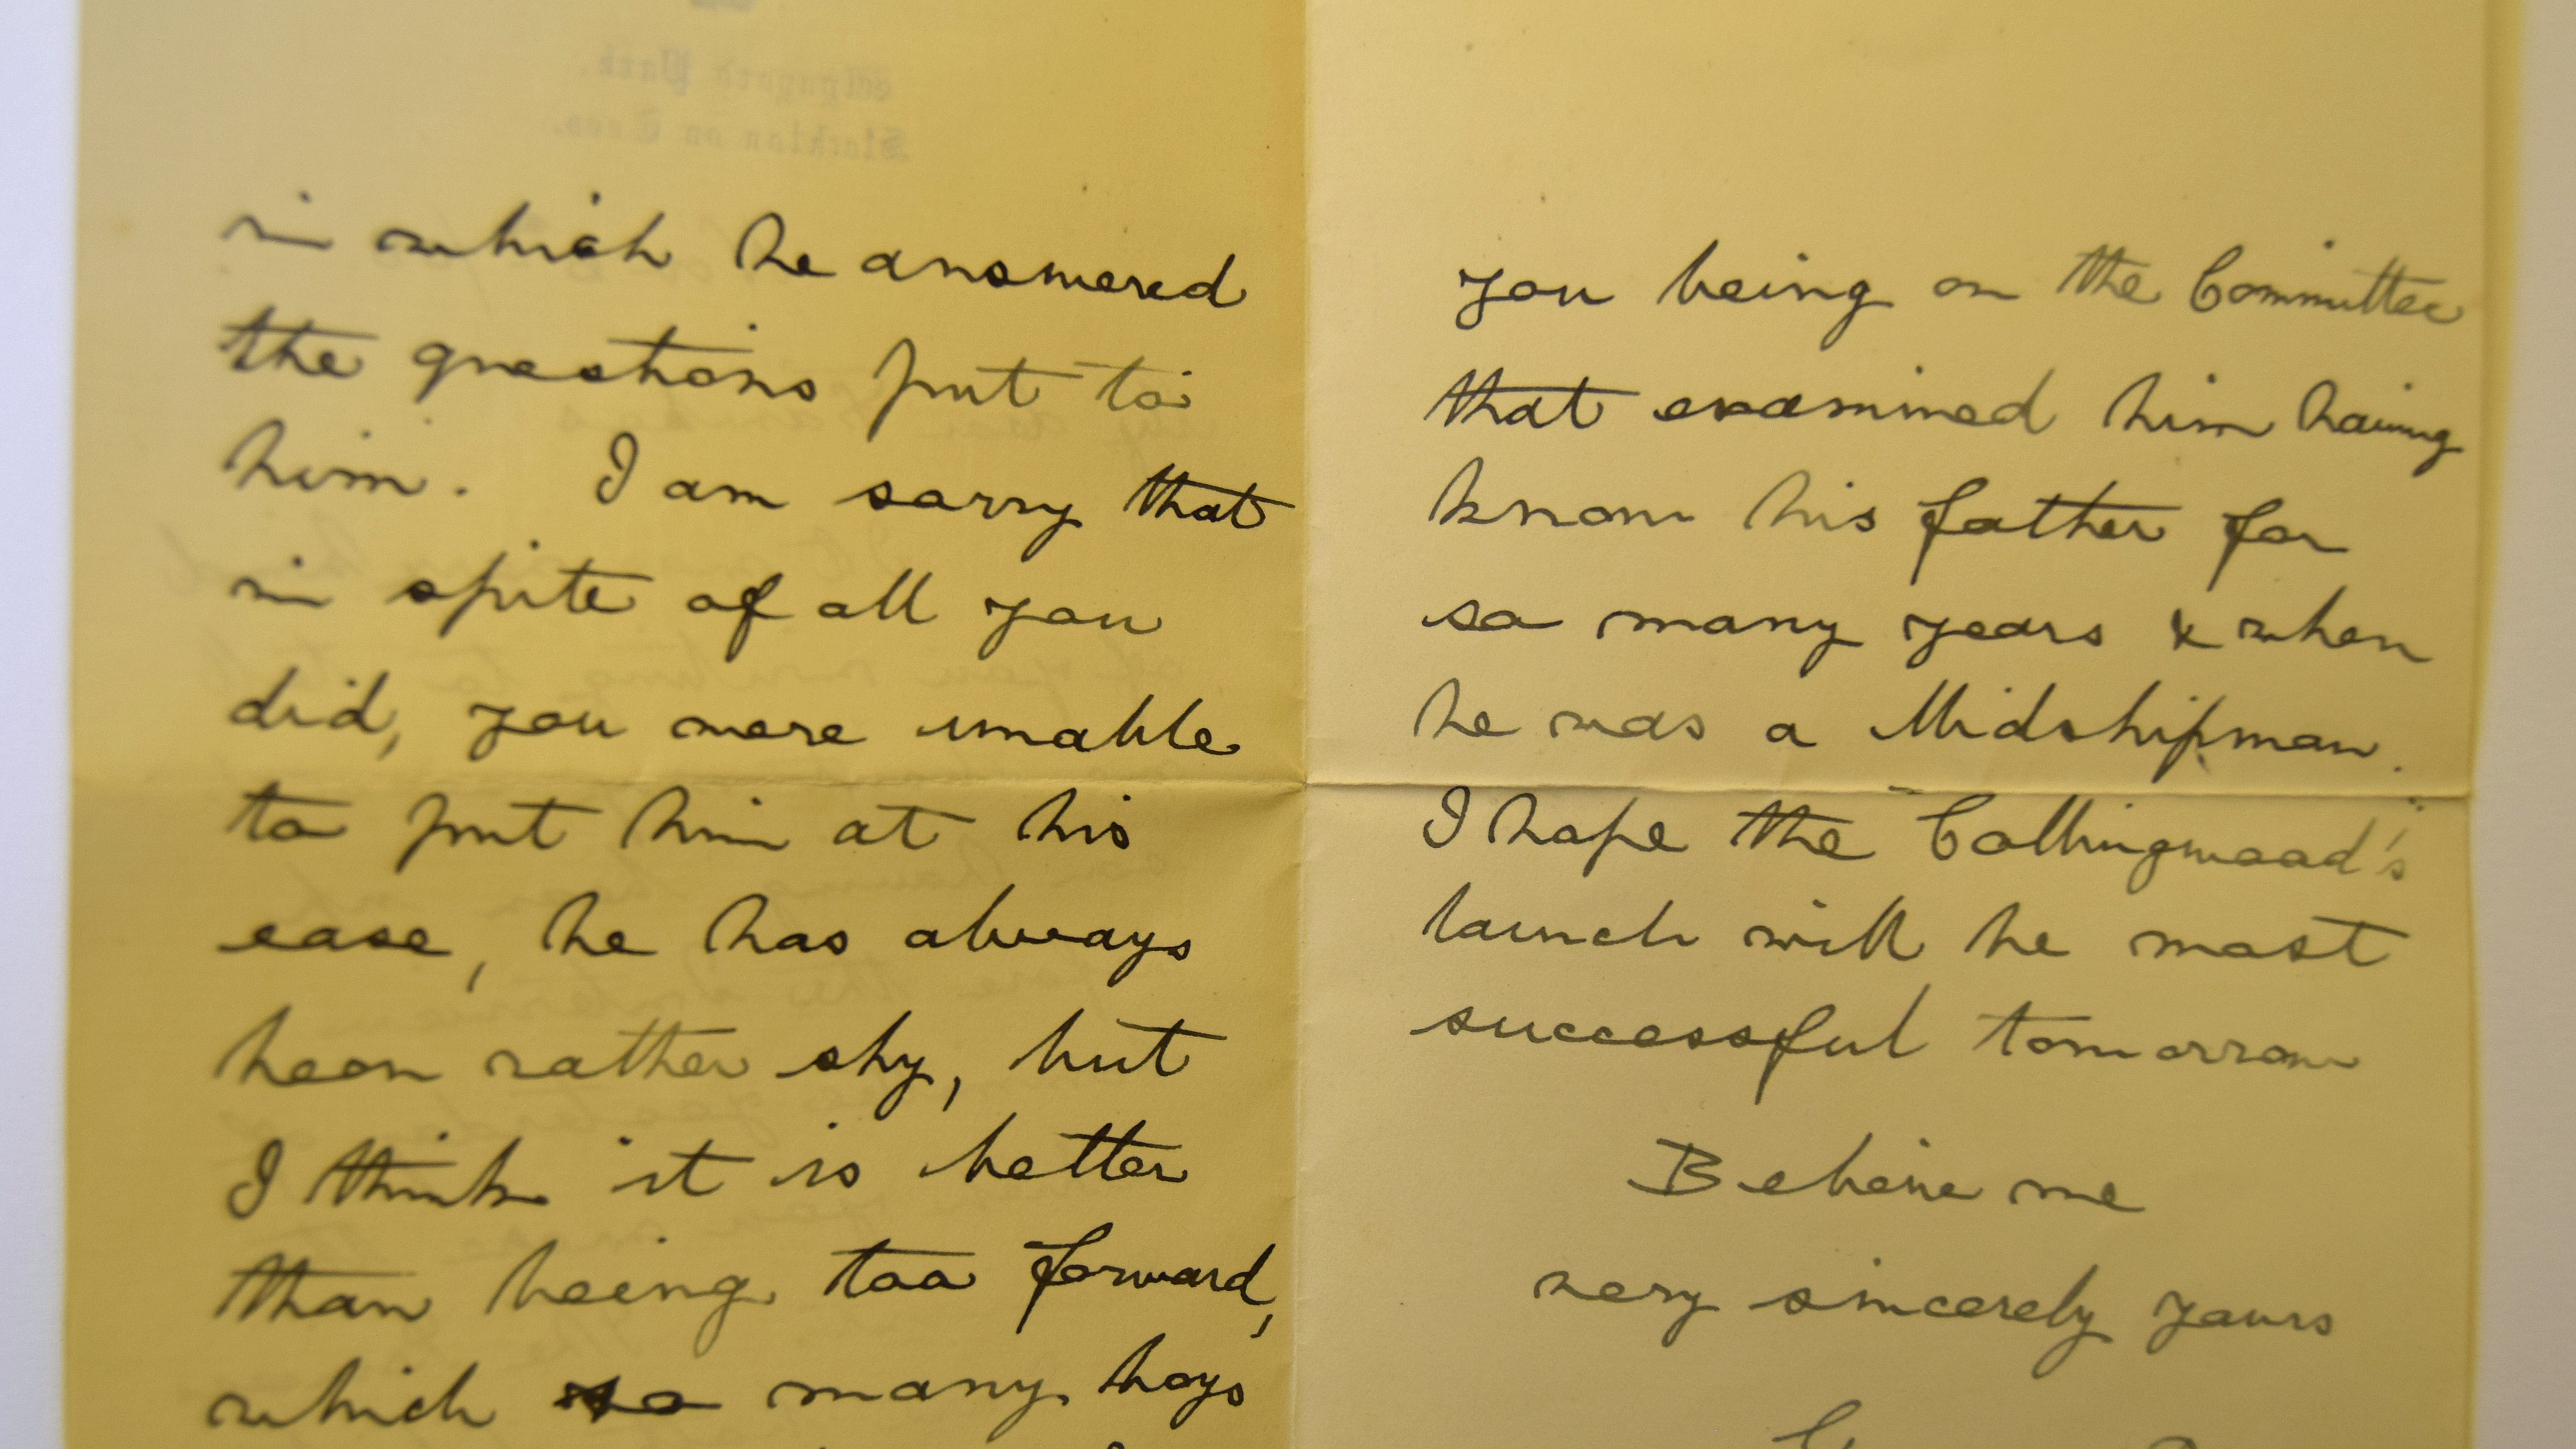 in which he answered
the questions put to
him. I am sorry that
in spite of all you
did, you were unable
to put him at his
ease, he has always
been rather shy, but
I think it is better
than being too forward,
which so many boys
you being on the Committee
that examined him having
know his father for
so many years & when
he was a Midshipman.
I hope the "Collingwood's"
launch will be most
successful tomorrow
Believe me
very sincerely yours